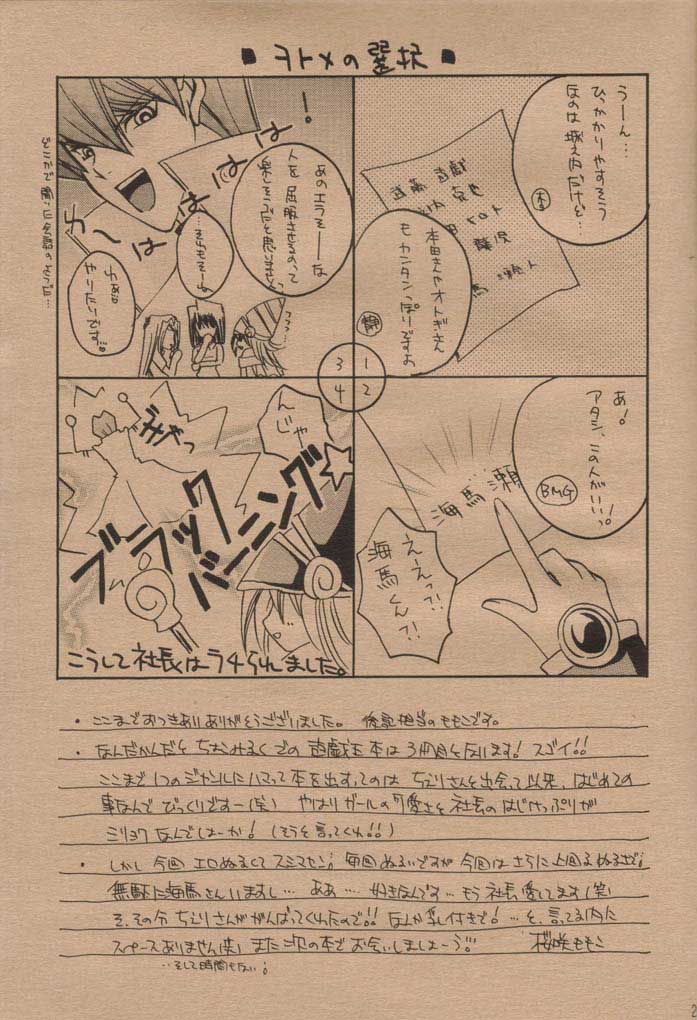 ■ ヲトメの選択 ■
うーん…
ひっかかりやすそう
なのは城之内だけど…
杏
武藤 遊戯
本田 ヒロト
本田さんやオトギさん
もカンタンっぽりですよ
静
1
2
3
4
あ!
アタシ、この人がいいっ。
BMG
海馬 瀬
えーえっ?!
海馬くん?!
!
わーはははは
あのエラソーな
人を屈服させるのって
楽しそうだと思いません
…それもそーね
わぁい
やりたいです。
ククク…
どこかで聞いた会話のようだ…
んじゃ
ブラック
バーニング☆
こうして社長はラチられました。
・ここまでおつきありありがとうございました。 後記担当のももこです。
・なんだかんだとちちみるくでの遊戯王本は3冊目を反います! スゴイ!!
ここまで1つのジャンルにハマって本を出すってのは ちえりさんと出会って以来、はじめての
事なんで びっくりですー(笑) やはりガールの可愛さと社長のはじけっぷりが
ミリョクなんでしょーか! (そうと言ってくれ!!)
・しかし今回エロぬるくてスミマセン; 毎回ぬるいですが今回はさらに上回るぬるさで;
無駄に海馬さんいますし… ああ… 好きなんです… もう社長愛してます(笑)
そ、その分ちえりさんががんばってくれたので!! なんか乳付きで! …と、言ってる内に
スペースありません(笑) また次の本でお会いしましょーう!! 桜咲ももこ
…そして時間もない;
2